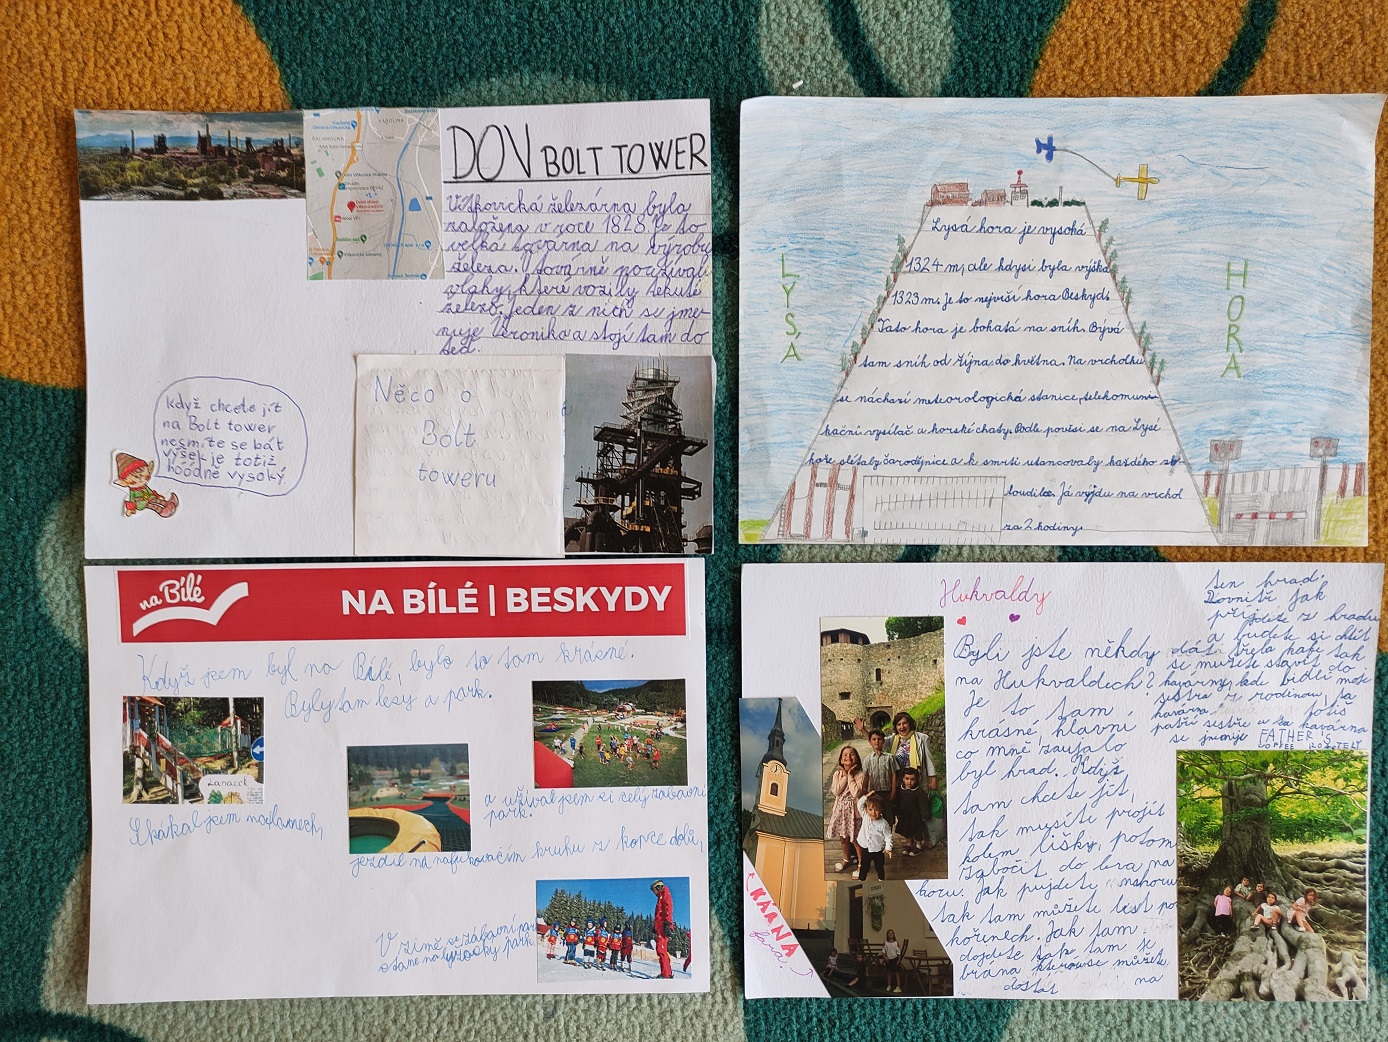 DOV BOLT TOWER
Vítkovická železárna byla
založena v roce 1828. Je to
velká továrna na výrobu
železa. V továrně používali
vlaky, které vozily tekuté
železo. Jeden z nich se jme-
nuje Veronika a stojí tam do
teď.
Když chcete jít
na Bolt tower
nesmíte se bát
výšek je totiž
hóódně vysoký
Něco o
Bolt
toweru
LYSÁ
HORA
Lysá hora je vysoká
1324 m, ale kdysi byla výška
1323 m. Je to nejvišší hora Beskyd.
Tato hora je bohatá na sníh. Bývá
tam sníh od října do května. Na vrcholku
se náchází meteorologická stanice, telekomuni-
kační vysílač a horské chaty. Podle pověsi se na Lysé
hoře slétaly čarodějnice a k smrti utancovaly každého
toudila. Já výjdu na vrchol
za 2 hodiny.
na Bílé
NA BÍLÉ | BESKYDY
Když jsem byl na Bílé, bylo to tam krásné.
Byly tam lesy a park.
Žanacek
Skákal jsem na
a užíval jsem si celý zábavní
park.
jezdil na nafukovacím kruhu z kopce dolů,
V zimě, se zábavní park
stane na lyzocky park
Hukvaldy
Byli jste někdy
na Hukvaldech?
Je to tam
krásné, hlavní
co mně zaujalo
byl hrad. Když
tam chcete jít,
tak musíte projít
kolem lišky, potom
zabočit do leva na
horu. Jak pujdete nahoru
tak tam můžete lést po
kořenech. Jak tam
dojdete tak tam je
brána kterou se můžete
dostát na
ten hrad.
Dovnitř jak
přijdete z hradu
a budete si chtít
dát třeba kafe tak
se mužete stavit do
kavárny, kde bidlí moje
sestra z rodinou, ta
kavárna totiž
patří sestře a ta kavárna
se jmenuje FATHER'S
COFFEE ROASTERY
KARNA
fara.